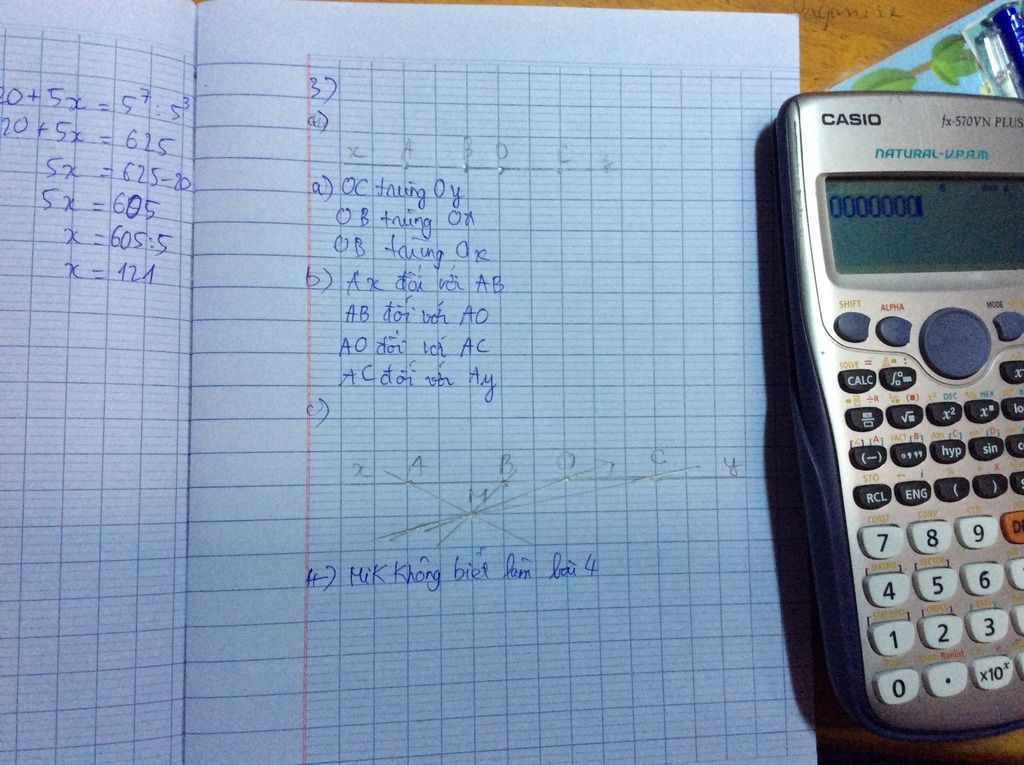 20+5x = 5⁷:5³
20+5x = 625
5x = 625-20
5x = 605
x = 605:5
x = 121
3)
a)
x A B O C y
a) OC trùng Oy
OB trùng OA
OB trùng Ox
b) Ax đối với AB
AB đối với AO
AO đối với AC
AC đối với Ay
c)
x A B O C y
M
4) Mik không biết làm bài 4
CASIO fx-570VN PLUS
NATURAL-V.P.A.M.
0000000
SHIFT ALPHA MODE
SOLVE =
CALC
x²
(−) hyp sin
STO
RCL ENG ( )
CONST CONV
7 8 9
MATRIX VECTOR
4 5 6
1 2 3
RanInt
0 . ×10ˣ